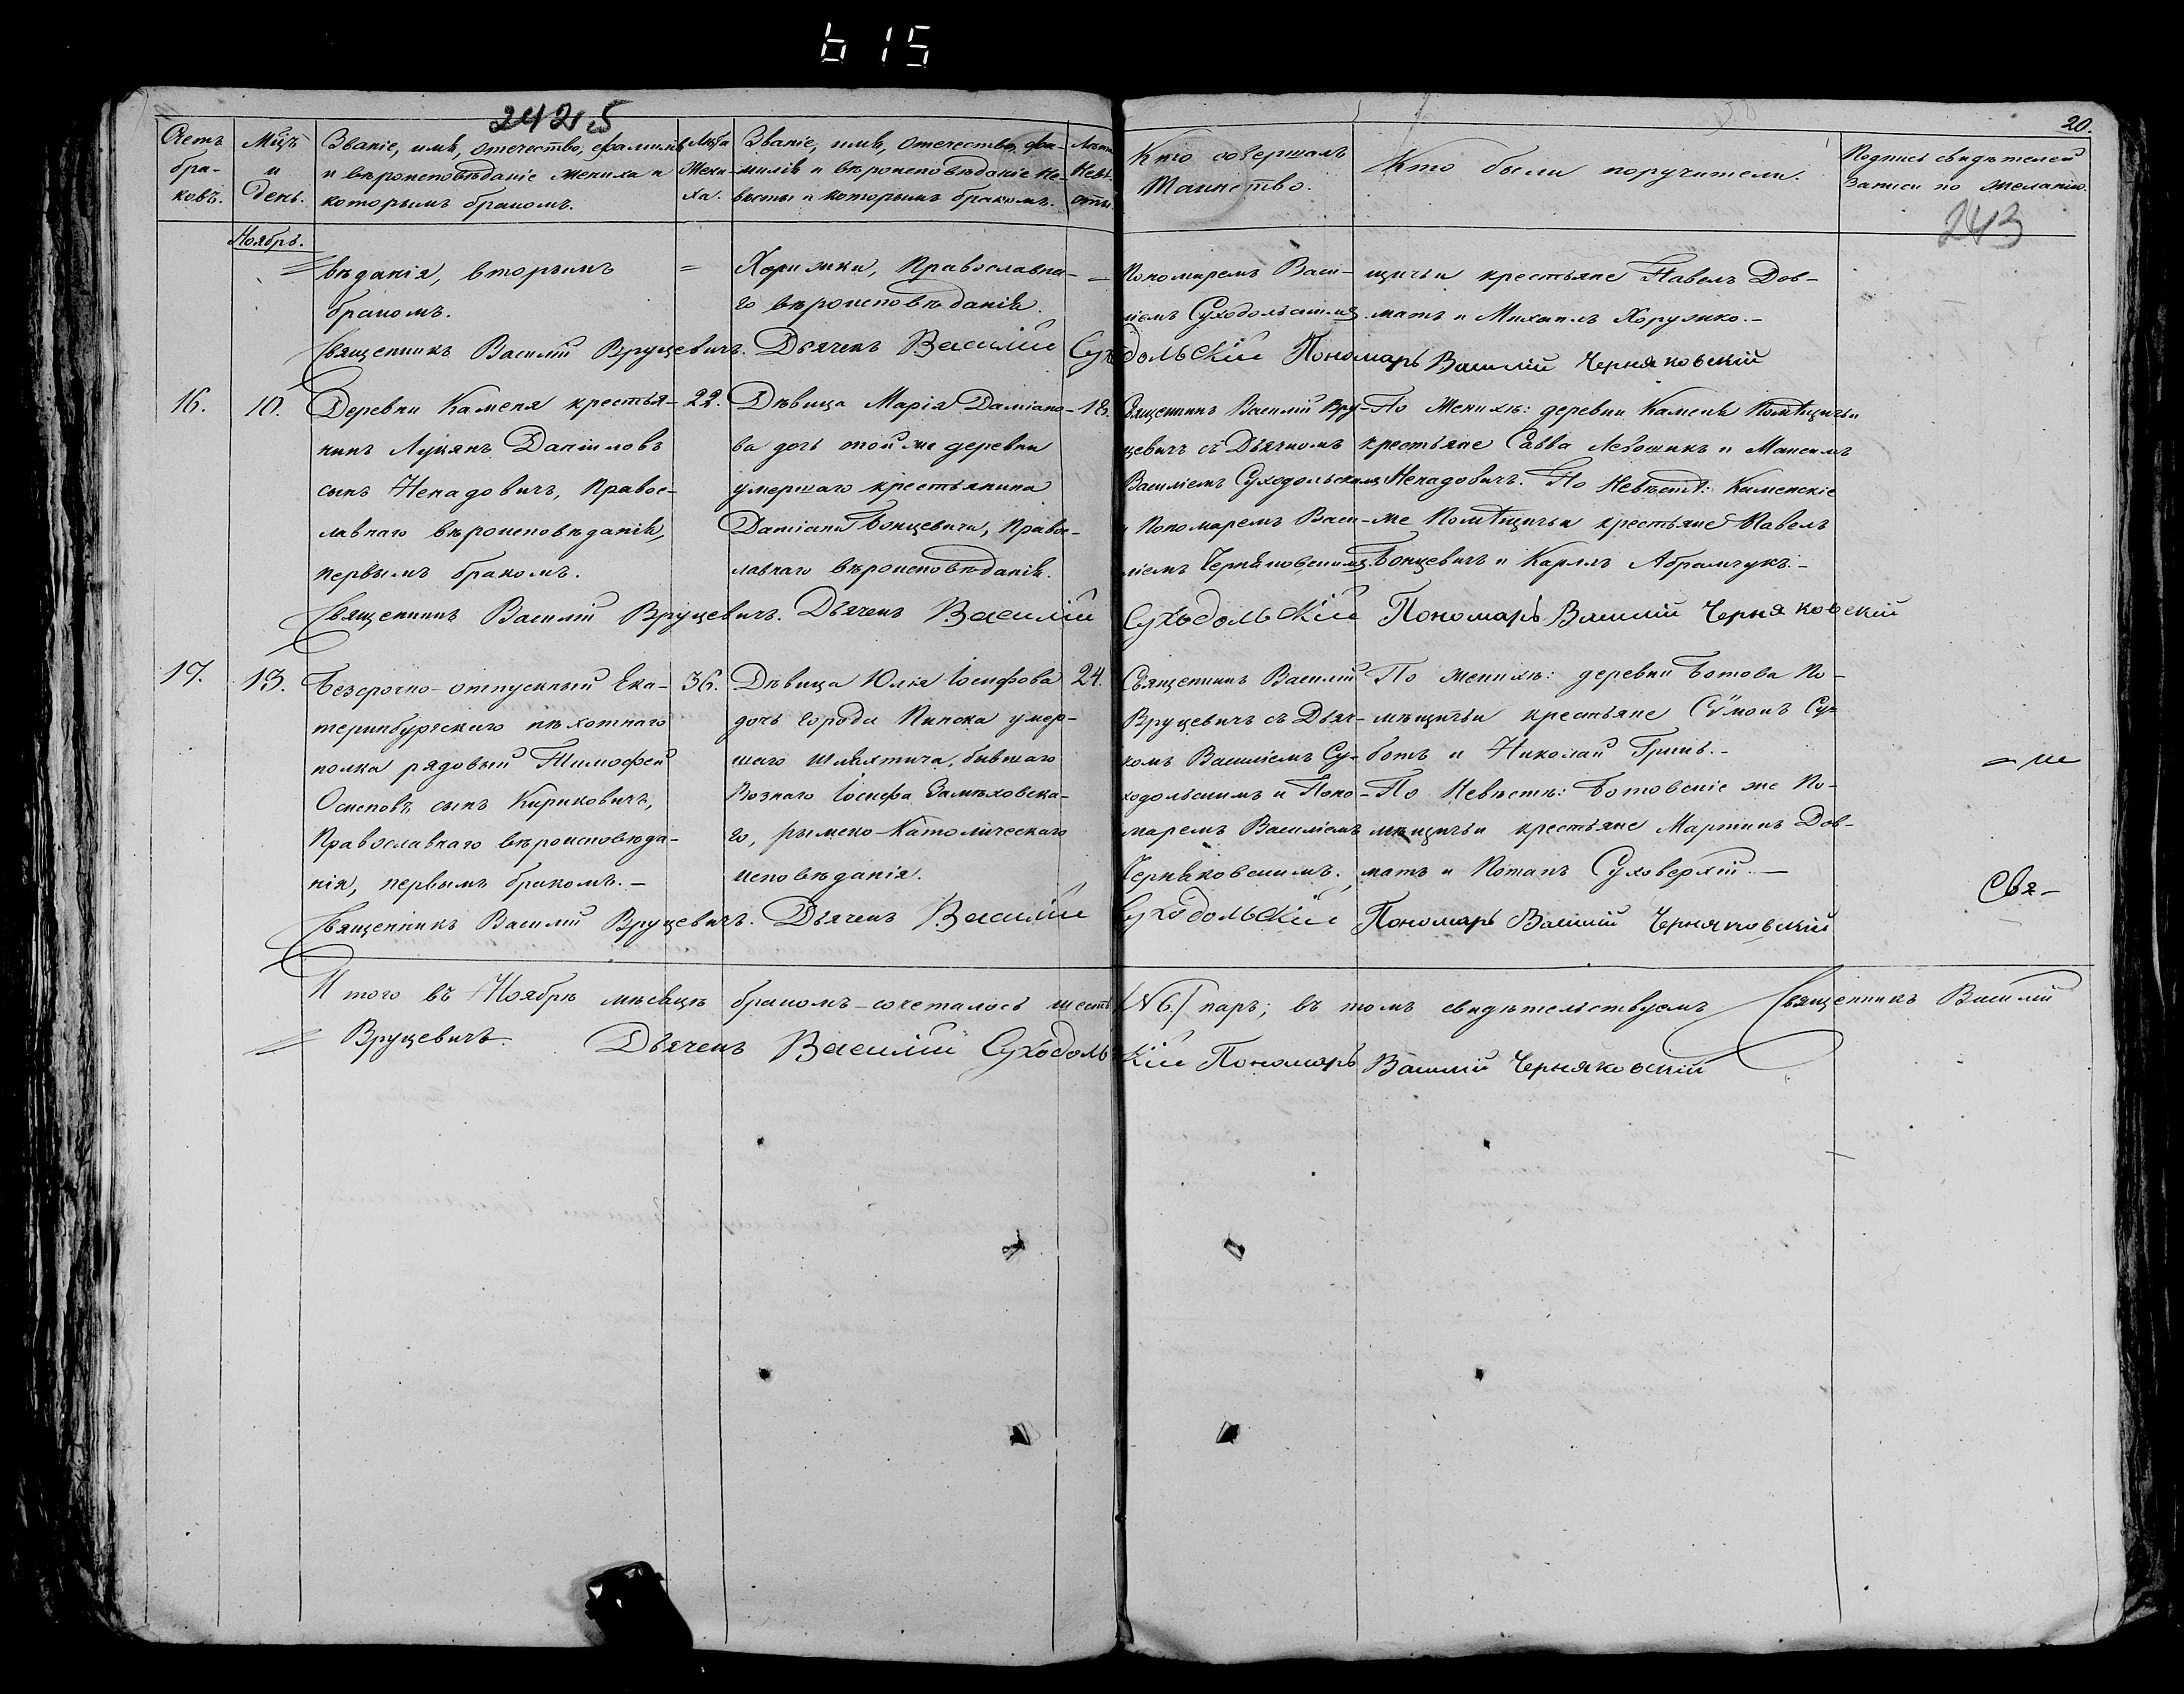 615
242,5
20.
Счетъ браковъ.
Мцъ и день.
Званіе, имя, отечество, фамилія и вѣроисповѣданіе жениха и которымъ бракомъ.
Лѣта Жениха.
Званіе, имя, отечество, фамилія и вѣроисповѣданіе невѣсты и которымъ бракомъ.
Лѣта Невѣсты.
Кто совершалъ Таинство.
Кто были поручители.
Подпись свидѣтелей записи по желанію.
243
Ноябрь.
вѣданія, вторымъ
бракомъ.
=
Хоружки, Православна-
го вѣроисповѣданія.
=
Пономаремъ Васи-
ліемъ
щичьи крестьяне Павелъ Дов-
матъ и Михаилъ Хоружко.-
Священникъ Василій Вруцевичъ. Дьячекъ Василій Суходольскій Пономарь Василій Черняковскій
16.
10.
Деревни Каменя крестья-
нинъ Лукянъ Даніиловъ
сынъ Ненадовичъ, Правос-
лавнаго вѣроисповѣданія,
первымъ бракомъ.
22.
Дѣвица Марія Даміано-
ва дочь той же деревни
умершаго крестьянина
Даміана Бонцевича, Правос-
лавнаго вѣроисповѣданія.
18.
Священникъ Василій Вру-
цевичъ съ Дьячкомъ
Василіемъ Суходольскимъ
и Пономаремъ Васи-
ліемъ Черняковскимъ.
По Женихѣ: деревни Каменя Помѣщичьи
крестьяне Савва Левошикъ и Максимъ
Ненадовичъ. По Невѣстѣ: Каменскіе
же Помѣщичьи крестьяне Павелъ
Бонцевичъ и Карллъ Абрамчукъ.-
Священникъ Василій Вруцевичъ. Дьячекъ Василій Суходольскій Пономарь Василій Черняковскій
17.
13.
Безсрочно-отпускный Ека-
теринбургскаго пѣхотнаго
полка рядовый Тимофей
Осиповъ сынъ Кириковичъ,
Православнаго вѣроисповѣда-
нія, первымъ бракомъ.-
36.
Дѣвица Юлія Іосифова
дочь города Пинска умер-
шаго шляхтича, бывшаго
Вознаго Іосифа Замѣховска-
го, рымско-Католическаго
исповѣданія.
24.
Священникъ Василій
Вруцевичъ съ Дьяч-
комъ Василіемъ Су-
ходольскимъ и Поно-
маремъ Василіемъ
Черняковскимъ.
По женихѣ: деревни Ботова По-
мѣщичьи крестьяне Сѵмонъ Су-
ботъ и Николай Гринь.-
По Невѣстѣ: Ботовскіе же По-
мѣщичьи крестьяне Мартинъ Дов-
матъ и Потапъ Суховерхій.-
Свя-
Священникъ Василій Вруцевичъ. Дьячекъ Василій Суходольскій Пономарь Василій Черняковскій
Итого въ Ноябрѣ мѣсяцѣ бракомъ-сочеталось шесть /№6./ паръ; въ томъ свидѣтельствуемъ Священникъ Василій
Вруцевичъ. Дьячекъ Василій Суходольскій Пономарь Василій Черняковскій